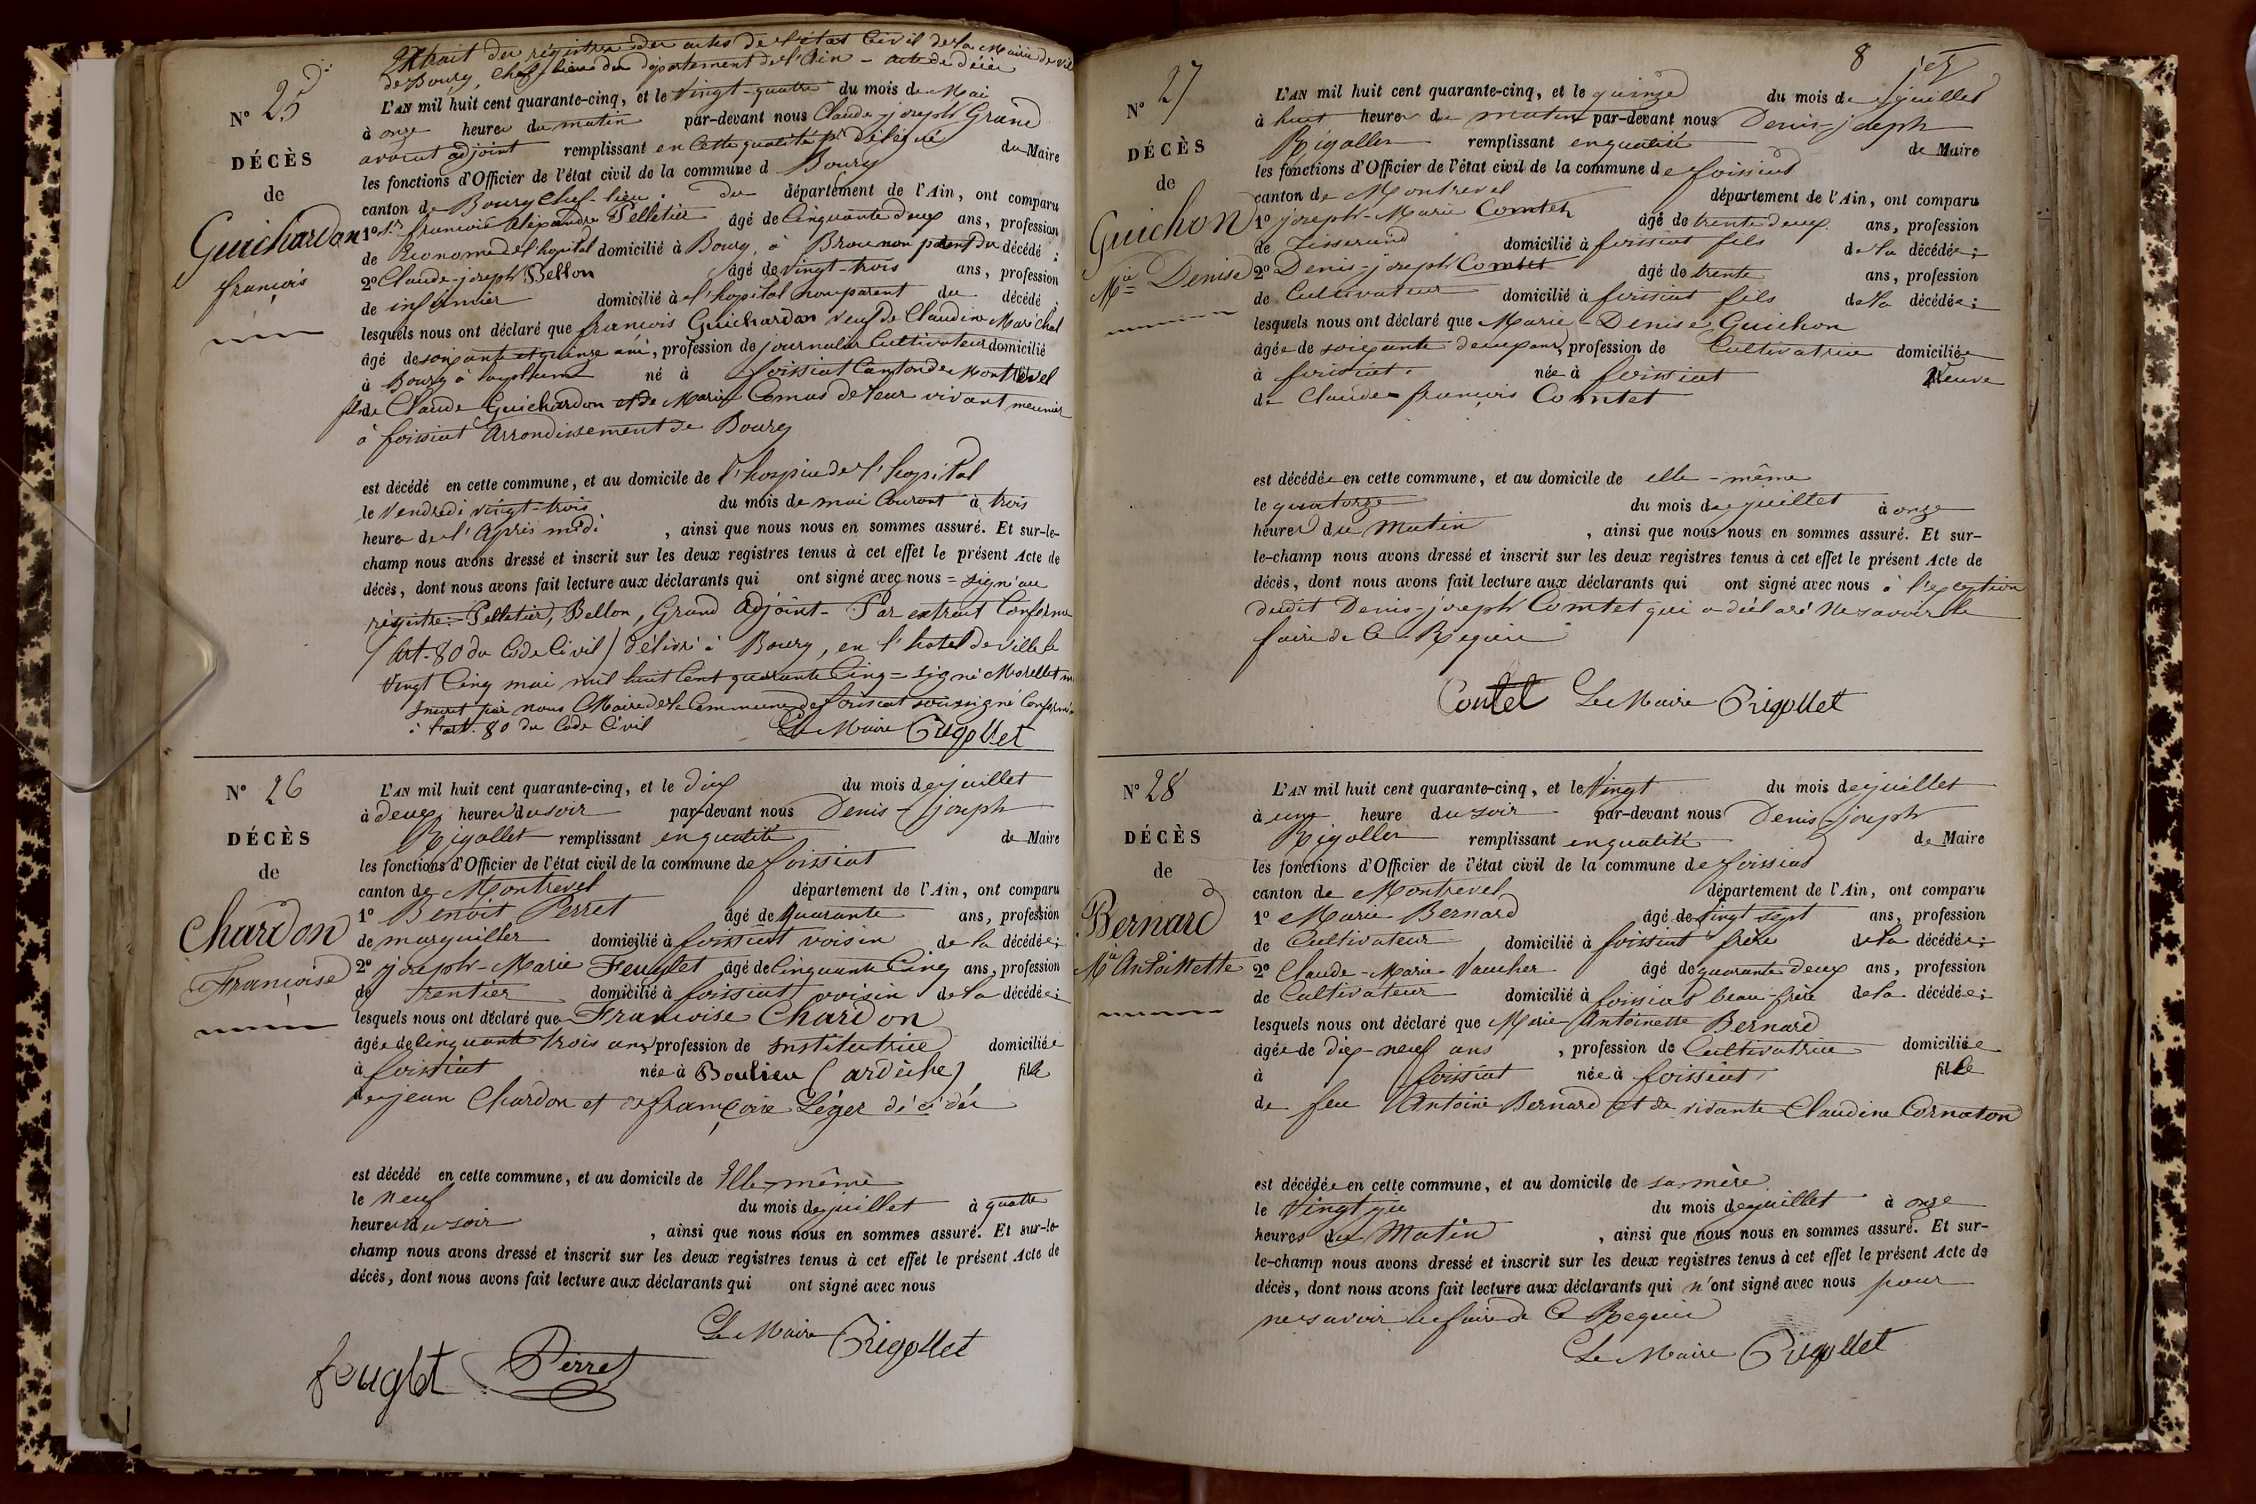 Extrait du régistre des actes de l'état Civil de la Mairie de
de Bourg, Chef lieu du département de l'Ain - acte de décès
N° 25
DÉCÈS
de
Guichardon
françois
L'AN mil huit cent quarante-cinq, et le vingt-quatre du mois de Mai
à onze heures du matin par-devant nous Claude-joseph Grand
avocat adjoint remplissant en cette qualité pr Délégué du Maire
les fonctions d'Officier de l'état civil de la commune d Bourg
canton de Bourg Chef-lieu du département de l'Ain, ont comparu
1° Sr françois Alexandre Pelletier âgé de Cinquante deux ans, profession
de Econome de l'hopital domicilié à Bourg, à Brou non parent du décédé ;
2° Claude-joseph Bellon âgé de vingt-trois ans, profession
de infirmier domicilié à l'hopital non parent du décédé ;
lesquels nous ont déclaré que françois Guichardon veuf de Claudine Maréchal
âgé de soixante et quinze ans, profession de journalier Cultivateur domicilié
à Bourg à né à foissiat Canton de Montrevel
fils de Claude Guichardon et de Marie Comas de leur vivant meunier
à foissiat Arrondissement de Bourg
est décédé en cette commune, et au domicile de l'hospice de l'hopital
le vendredi vingt-trois du mois de mai Courant à trois
heures de l'Après midi , ainsi que nous nous en sommes assuré. Et sur-le-
champ nous avons dressé et inscrit sur les deux registres tenus à cet effet le présent Acte de
décès, dont nous avons fait lecture aux déclarants qui ont signé avec nous = signé au
régistre = Pelletier, Bellon, Grand Adjoint - Par extrait Conforme
(Art. 80 du Code Civil) délivré à Bourg, en l'hotel de ville le
vingt Cinq mai mil huit Cent quarante Cinq = signé Morellet
Inscrit par nous Maire de la Commune de foissiat soussigné
à l'art. 80 du Code Civil Le Maire Rigollet
N° 26
DÉCÈS
de
Chardon
Françoise
L'AN mil huit cent quarante-cinq, et le dix du mois de juillet
à deux heures du soir par-devant nous Denis-joseph
Rigollet remplissant en qualité de Maire
les fonctions d'Officier de l'état civil de la commune de foissiat
canton de Montrevel département de l'Ain, ont comparu
1° Benoit Perret âgé de quarante ans, profession
de marguiller domicilié à foissiat voisin de la décédée ;
2° joseph-Marie Feuglet âgé de Cinquante Cinq ans, profession
de rentier domicilié à foissiat voisin de la décédée ;
lesquels nous ont déclaré que Françoise Chardon
âgée de Cinquante trois ans, profession de Institutrice domiciliée
à foissiat née à Boulieu (ardèche) fille
de jean Chardon et de françoise Léger décédés
est décédé en cette commune, et au domicile de Elle-même
le neuf du mois de juillet à quatre
heures du soir , ainsi que nous nous en sommes assuré. Et sur-le-
champ nous avons dressé et inscrit sur les deux registres tenus à cet effet le présent Acte de
décès, dont nous avons fait lecture aux déclarants qui ont signé avec nous
Le Maire Rigollet
feuglet Perret
8
N° 27
DÉCÈS
de
Guichon
Mie Denise
L'AN mil huit cent quarante-cinq, et le quinze du mois de juillet
à huit heures du matin par-devant nous Denis-joseph
Rigollet remplissant en qualité de Maire
les fonctions d'Officier de l'état civil de la commune de foissiat
canton de Montrevel département de l'Ain, ont comparu
1° joseph-Marie Comtet âgé de trente deux ans, profession
de Tisserand domicilié à foissiat fils de la décédée ;
2° Denis-joseph Comtet âgé de trente ans, profession
de Cultivateur domicilié à foissiat fils de la décédée ;
lesquels nous ont déclaré que Marie-Denise Guichon
âgée de soixante deux ans, profession de Cultivatrice domiciliée
à foissiat née à foissiat Veuve
de Claude françois Comtet
est décédée en cette commune, et au domicile de elle-même
le quatorze du mois de juillet à onze
heures du Matin , ainsi que nous nous en sommes assuré. Et sur-
le-champ nous avons dressé et inscrit sur les deux registres tenus à cet effet le présent Acte de
décès, dont nous avons fait lecture aux déclarants qui ont signé avec nous à l'exception
dudit Denis-joseph Comtet qui a déclaré ne savoir le
faire de Ce Requis
Contet Le Maire Rigollet
N° 28
DÉCÈS
de
Bernard
Mie Antoinette
L'AN mil huit cent quarante-cinq, et le vingt du mois de juillet
à une heure du soir par-devant nous Denis-joseph
Rigollet remplissant en qualité de Maire
les fonctions d'Officier de l'état civil de la commune de foissiat
canton de Montrevel département de l'Ain, ont comparu
1° Marie Bernard âgé de vingt sept ans, profession
de Cultivateur domicilié à foissiat frère de la décédée ;
2° Claude-Marie Vaucher âgé de quarante deux ans, profession
de Cultivateur domicilié à foissiat beau-frère de la décédée ;
lesquels nous ont déclaré que Marie Antoinette Bernard
âgée de dix-neuf ans , profession de Cultivatrice domiciliée
à foissiat née à foissiat fille
de feu Antoine Bernard et de vivante Claudine Cornaton
est décédée en cette commune, et au domicile de sa mère
le vingt du mois de juillet à onze
heures du Matin , ainsi que nous nous en sommes assuré. Et sur-
le-champ nous avons dressé et inscrit sur les deux registres tenus à cet effet le présent Acte de
décès, dont nous avons fait lecture aux déclarants qui n'ont signé avec nous pour
ne savoir le faire de Ce Requis
Le Maire Rigollet